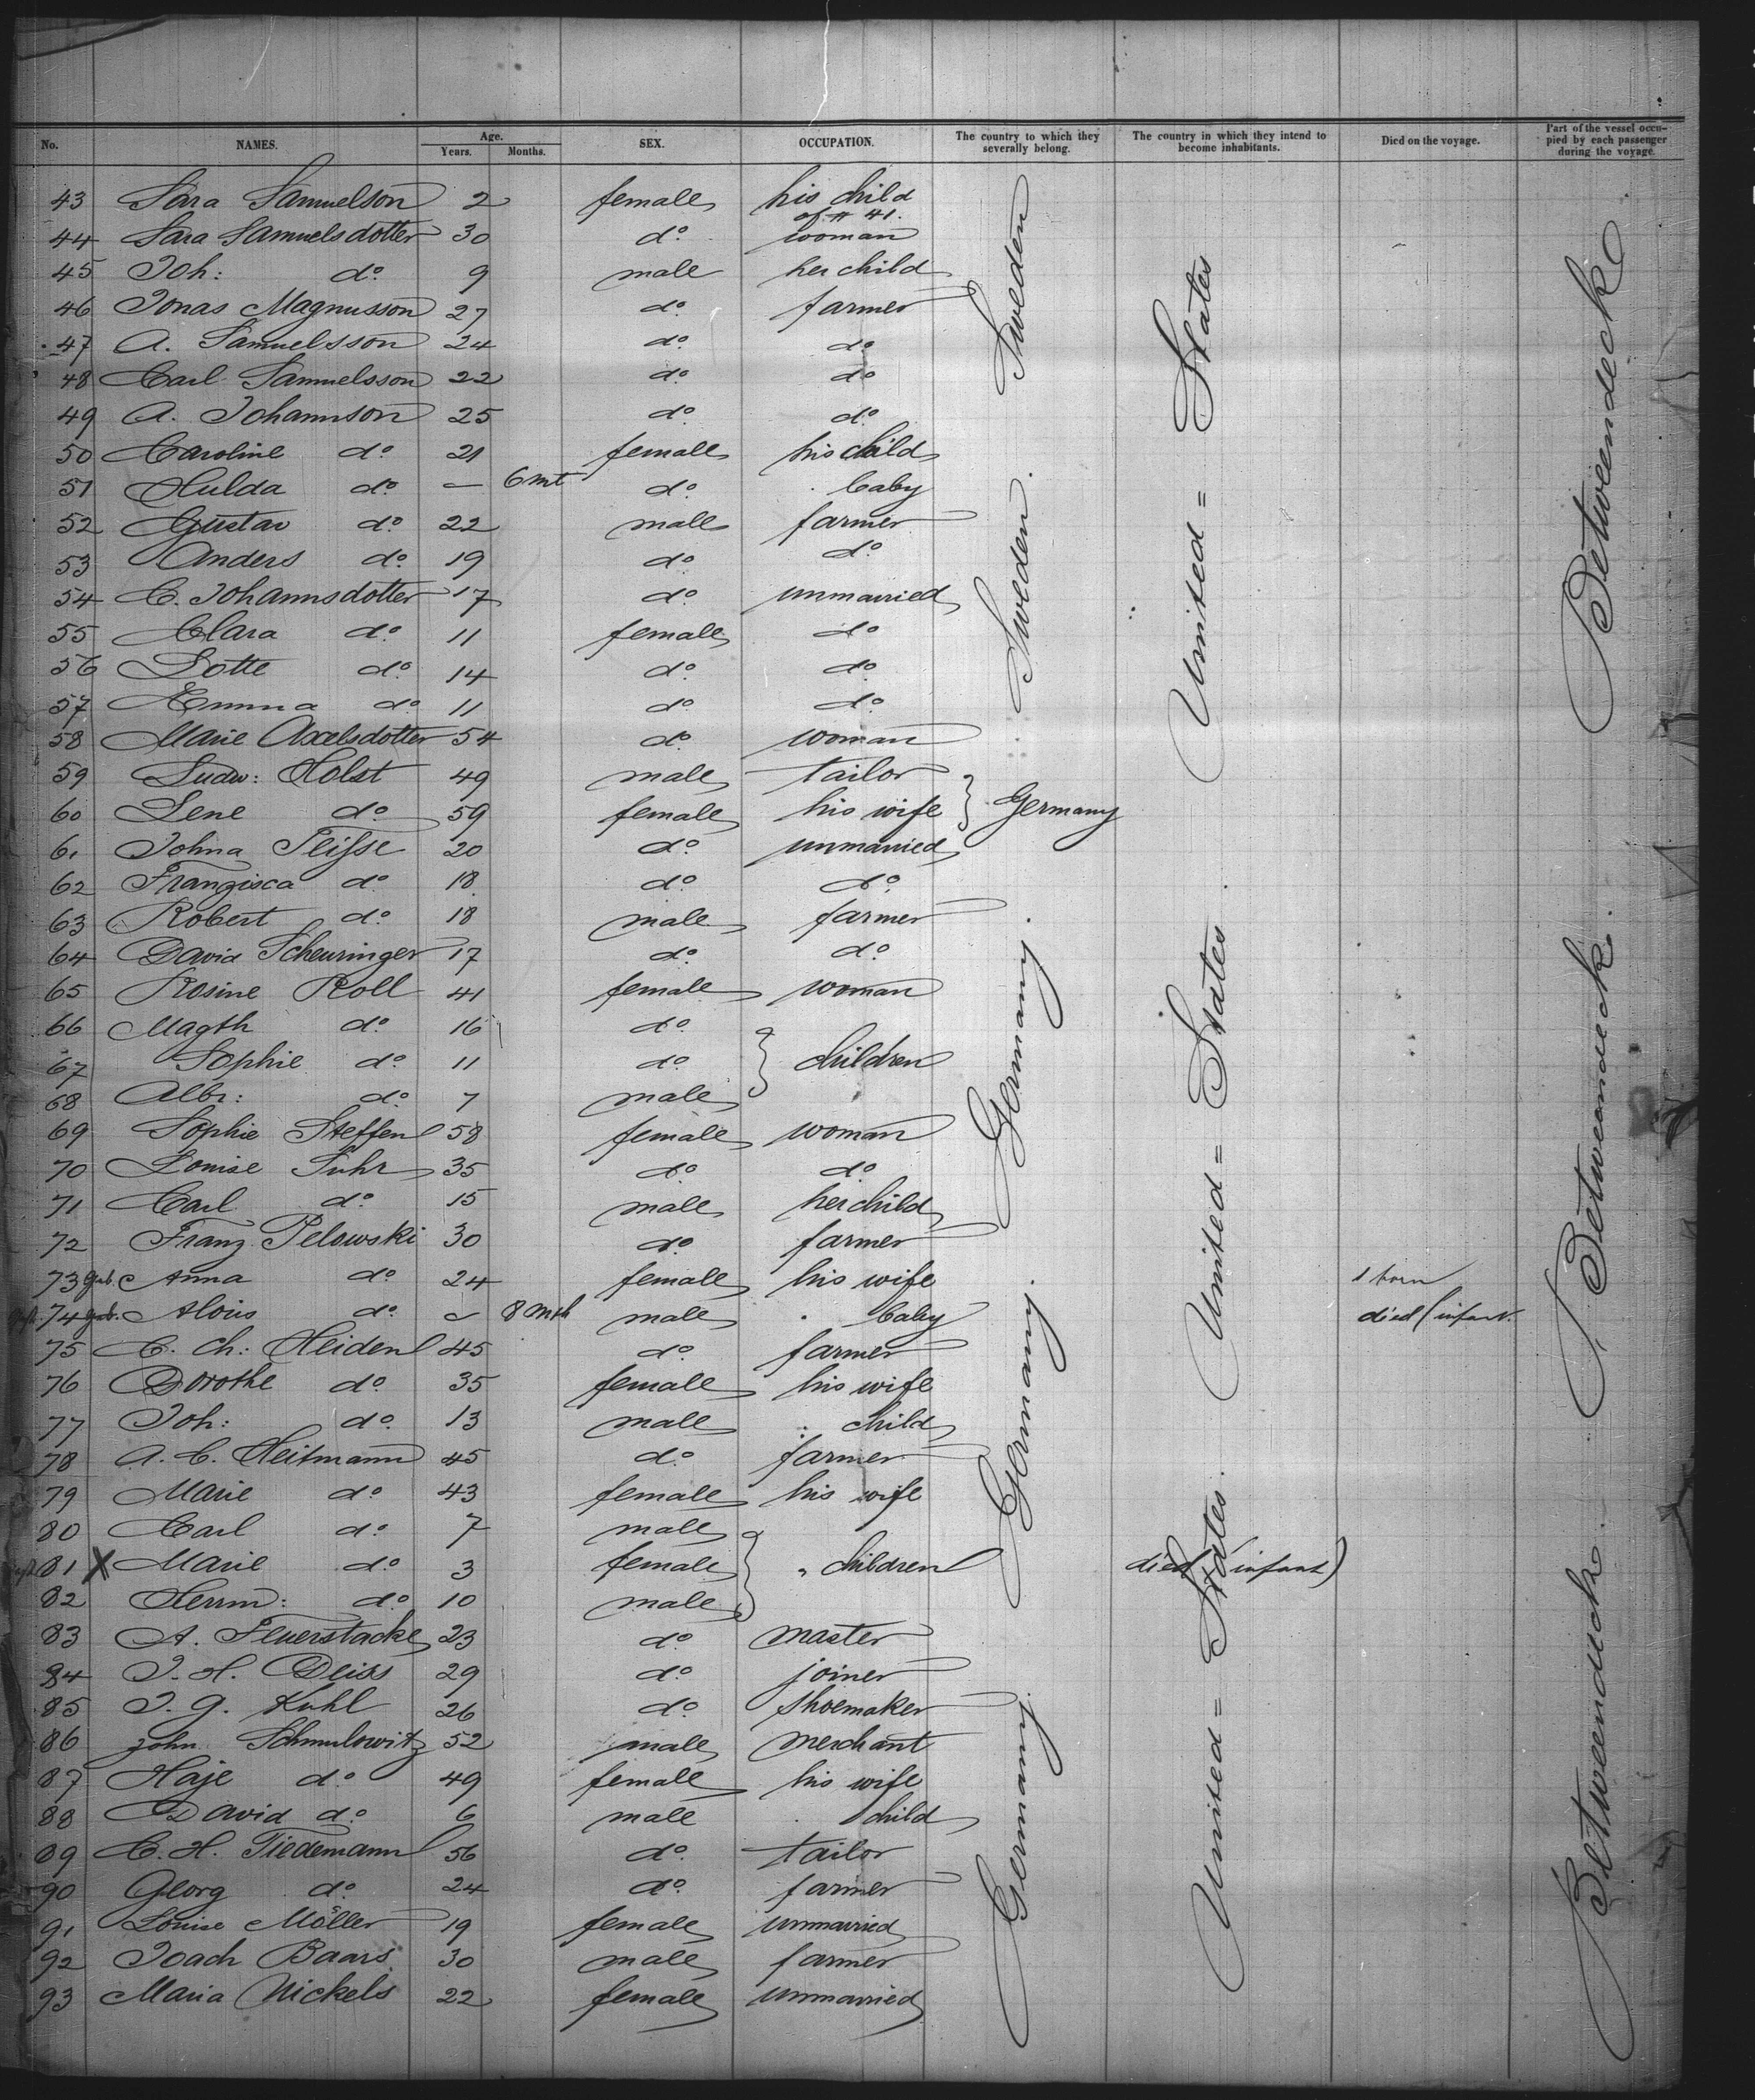 No. NAMES. Age. Years. Months. SEX. OCCUPATION. The country to which they severally belong. The country in which they intend to become inhabitants. Died on the voyage. Part of the vessel occupied by each passenger during the voyage.
43 Sara Samuelson 2 female his child of # 41.
44 Sara Samuelsdotter 30 do woman
45 Joh: do 9 male her child
46 Jonas Magnusson 27 do farmer
47 A. Samuelsson 24 do do
48 Carl Samuelsson 22 do do
49 A. Johannson 25 do do
50 Caroline do 21 female his child
51 Hulda do — 6 mt do baby
52 Gustav do 22 male farmer
53 Anders do 19 do do
54 C. Johannsdotter 17 do unmarried
55 Clara do 11 female do
56 Lotte do 14 do do
57 Emma do 11 do do
58 Marie Axelsdotter 54 do woman
59 Ludw: Holst 49 male tailor
60 Lene do 59 female his wife Germany
61 Johna 20 do unmarried
62 Franzisca do 18 do do
63 Robert do 18 male farmer
64 David Scheuringer 17 do do
65 Rosine Roll 41 female woman
66 Magth do 16 do
67 Sophie do 11 do children
68 Albr: do 7 male
69 Sophie Steffen 58 female woman
70 Louise Suhr 35 do do
71 Carl do 15 male her child
72 Franz Pelowski 30 do farmer
73 Anna do 24 female his wife 1 born
74 Alois do — 8 mth male baby died (infant.
75 C. Ch: Heiden 45 do farmer
76 Dorothe do 35 female his wife
77 Joh: do 13 male child
78 A. C. Heitmann 45 do farmer
79 Marie do 43 female his wife
80 Carl do 7 male
81 X Marie do 3 female children died (infant)
82 Herm: do 10 male
83 A. Feuerstacke 23 do master
84 J. H. Deiss 29 do joiner
85 J. G. Kuhl 26 do shoemaker
86 John Schmulowitz 52 male merchant
87 Haje do 49 female his wife
88 David do 6 male child
89 C. H. Tiedemann 56 do tailor
90 Georg do 24 do farmer
91 Louise Möller 19 female unmarried
92 Joach Baars 30 male farmer
93 Maria Nickels 22 female unmarried
Sweden Sweden. Germany. Germany. Germany.
United = States United = States United = States
Betweendeck Betweendeck. Betweendeck.